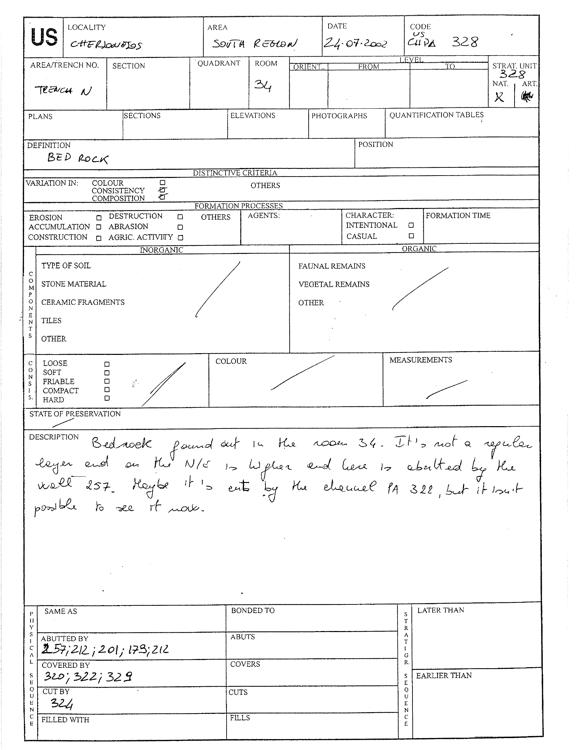 US
LOCALITY
CHERSONESOS
AREA
SOUTH REGION
DATE
24.07.2002
CODE
US
CHDA 328
AREA/TRENCH NO.
TRENCH N
SECTION
QUADRANT
ROOM
34
LEVEL
ORIENT. FROM TO
STRAT. UNIT
328
NAT. ART.
X
PLANS
SECTIONS
ELEVATIONS
PHOTOGRAPHS
QUANTIFICATION TABLES
DEFINITION
BED ROCK
POSITION
DISTINCTIVE CRITERIA
VARIATION IN: COLOUR
CONSISTENCY
COMPOSITION
OTHERS
FORMATION PROCESSES
EROSION DESTRUCTION OTHERS
ACCUMULATION ABRASION
CONSTRUCTION AGRIC. ACTIVITY
AGENTS:
CHARACTER:
INTENTIONAL
CASUAL
FORMATION TIME
COMPONENTS
INORGANIC
TYPE OF SOIL
STONE MATERIAL
CERAMIC FRAGMENTS
TILES
OTHER
ORGANIC
FAUNAL REMAINS
VEGETAL REMAINS
OTHER
CONSIS.
LOOSE
SOFT
FRIABLE
COMPACT
HARD
COLOUR
MEASUREMENTS
STATE OF PRESERVATION
DESCRIPTION
Bedrock found out in the room 34. It's not a regular
layer and on the N/E is higher and here is abutted by the
wall 257. Maybe it is cuts by the channel PA 322, but it isn't
possible to see it now.
PHYSICAL SEQUENCE
SAME AS
ABUTTED BY
257; 212; 201; 179; 212
COVERED BY
320; 322; 329
CUT BY
324
FILLED WITH
BONDED TO
ABUTS
COVERS
CUTS
FILLS
STRATIGR. SEQUENCE
LATER THAN
EARLIER THAN